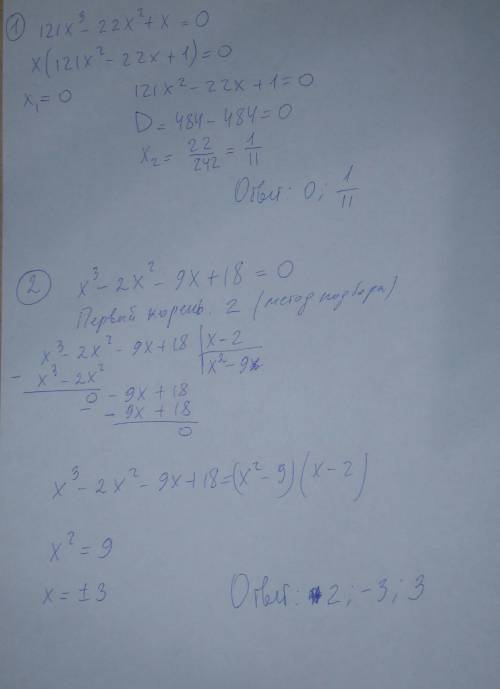 1 121x³ - 22x² + x = 0
x(121x² - 22x + 1) = 0
x₁ = 0 121x² - 22x + 1 = 0
D = 484 - 484 = 0
x₂ = 22/242 = 1/11
Ответ: 0; 1/11
2 x³ - 2x² - 9x + 18 = 0
Первый корень: 2 (метод подбора)
x³ - 2x² - 9x + 18 | x - 2
- x³ - 2x² | x² - 9
0 - 9x + 18
- - 9x + 18
0
x³ - 2x² - 9x + 18 = (x² - 9)(x - 2)
x² = 9
x = ±3
Ответ: 2; -3; 3